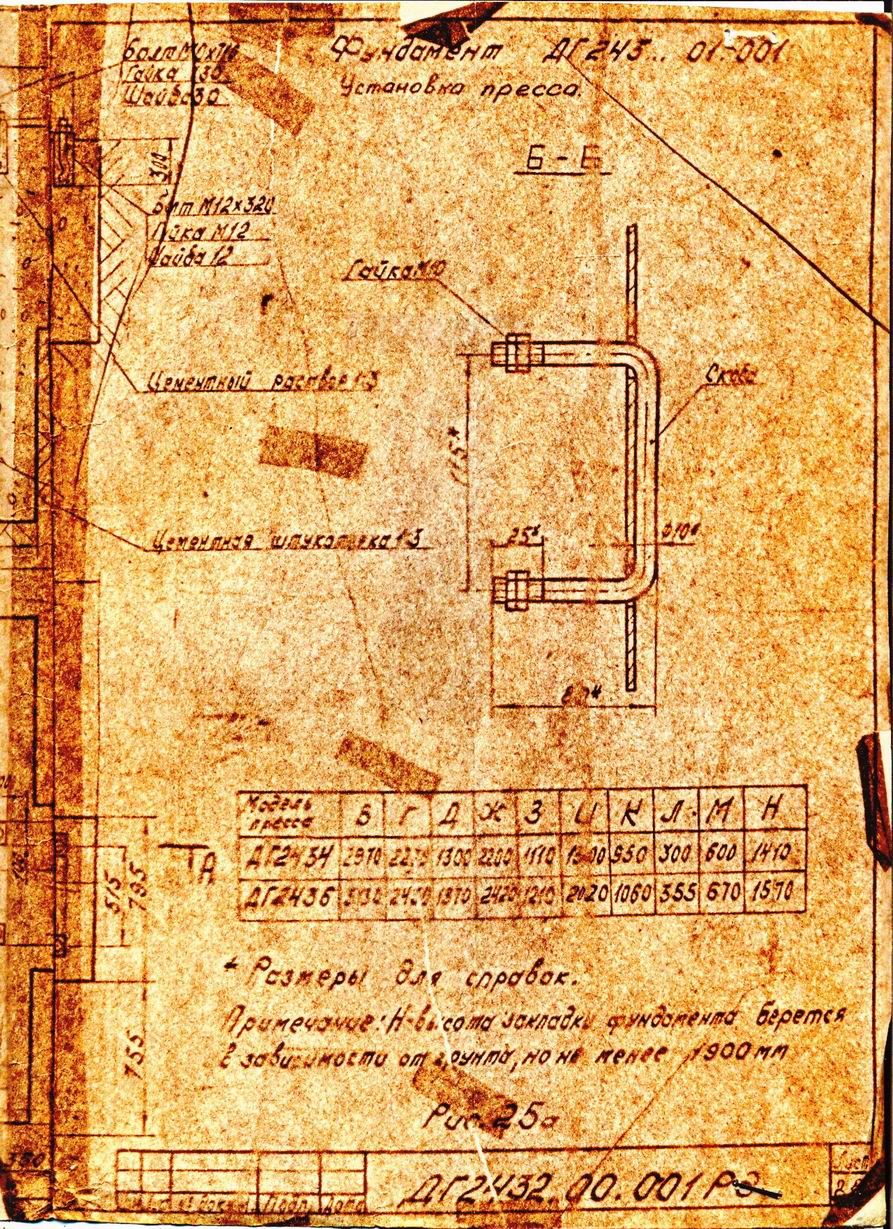 Фундамент ДГ243... 01.-001
Установка пресса.
Гайка М30
Шайба 30
300
Б - Б
Болт М12×320
Гайка М12
Шайба 12
Гайка М10
Цементный раствор 1:3
Скоба
115*
Цементная штукатурка 1:3
25*
Ø10*
80*
Модель пресса В Г Д Ж З И К Л М Н
ДГ2434 1300 2200 1110 950 300 600 1410
ДГ2436 2420 1210 2020 1060 355 670 1570
А
515
795
755
* Размеры для справок.
Примечание: Н-высота закладки фундамента берется
в зависимости от грунта, но не менее 1900 мм
Рис. 25а
Лист
ДГ2432.00.001 РЭ